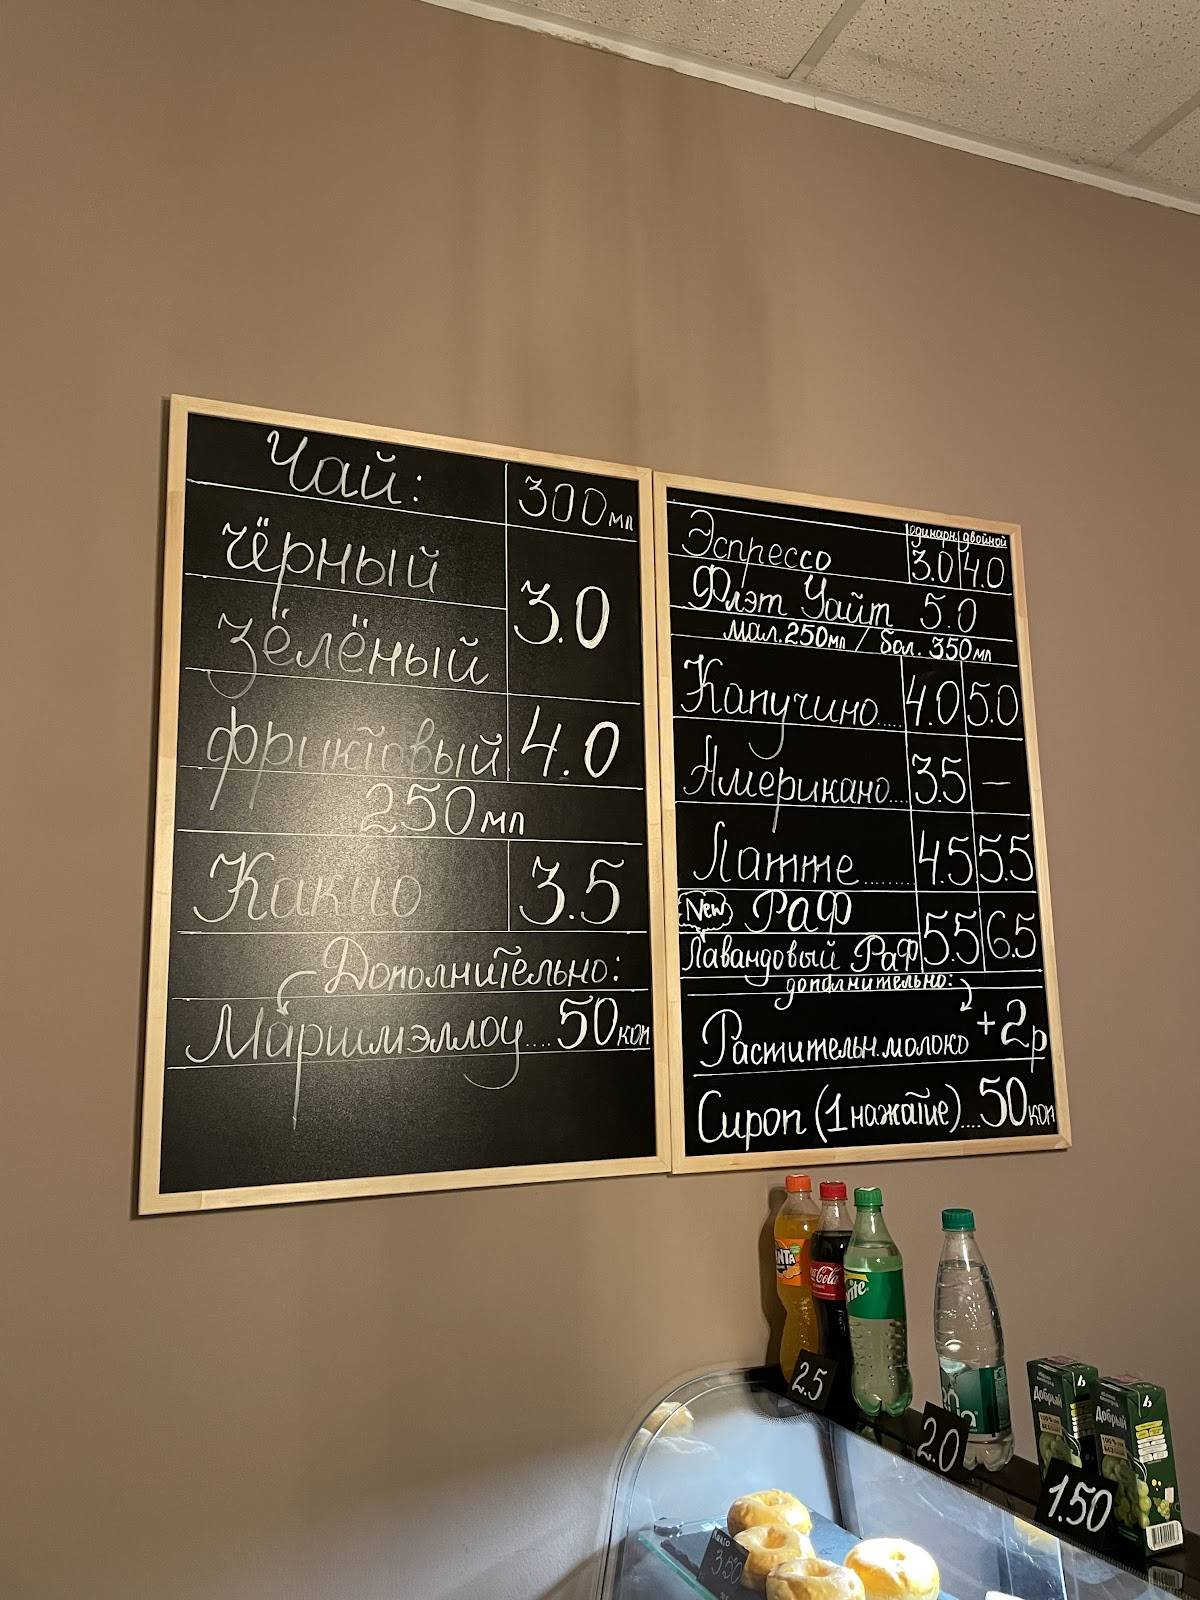 Чай: 300мл
чёрный
3.0
зелёный
фруктовый 4.0
250мл
Какао 3.5
Дополнительно:
Маршмэллоу.... 50коп
одинарн. двойной
Эспрессо 3.0 4.0
Флэт Уайт 5.0
мал. 250мл / бол. 350мл
Капучино..... 4.0 5.0
Американо.... 3.5 –
Латте........ 4.5 5.5
New Раф
5.5 6.5
Лавандовый Раф
дополнительно:
Растительн. молоко +2р
Сироп (1 нажатие).... 50коп
Coca-Cola
2.5
2.0
Добрый
Добрый
1.50
3.50